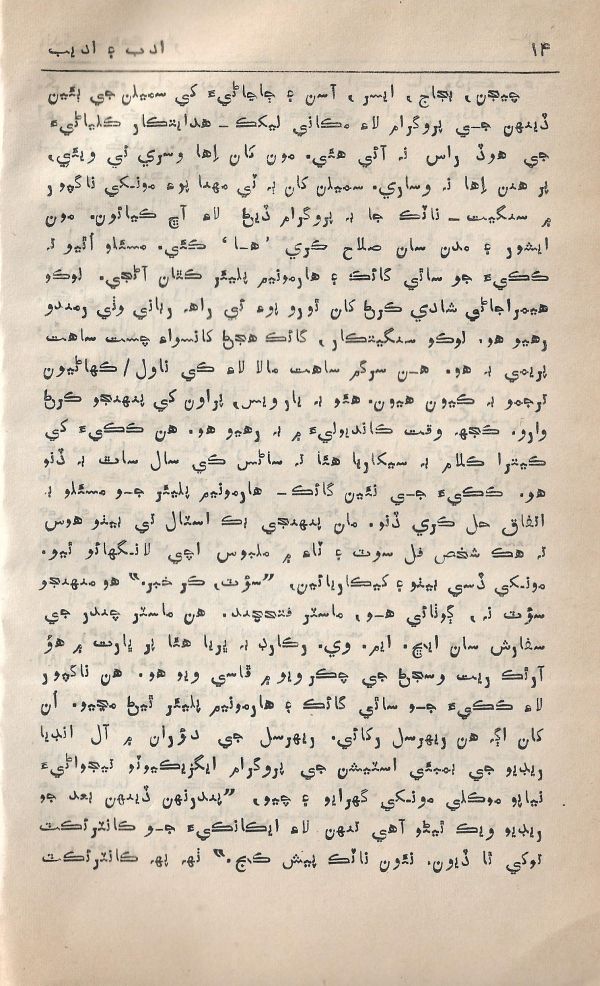 ۱۴ ادب ۽ اديب
چيڄن، بجاج، ايسر، آسن ۽ ڄاڃاڻيءَ کي سميلن جي ٻئين
ڏينهن جي پروگرام لاءِ مڪاني ليکڪ - هدايتڪار ڪلياڻيءَ
جي هوڏ راس نہ آئي هئي. مون کان اِها وسري ئي ويئي،
پر هنن اِها نہ وساري. سميلن کان بہ ٽي مهنا پوءِ مونکي ناگپور
۾ سنگيت - ناٽڪ جا بہ پروگرام ڏيڻ لاءِ آڇ ڪيائون. مون
ايشور ۽ مدن سان صلاح ڪري ’ها‘ ڪئي. مسئلو اُٿيو تہ
ڪڪيءَ جو ساٿي گائڪ ۽ هارمونيم پليئر ڪٿان آڻجي. لوڪو
هيمراجاڻي شادي ڪرڻ کان ٿورو پوءِ ئي راهہ رباني وٺي رمندو
رهيو هو. لوڪو سنگيتڪار، گائڪ هجڻ کانسواءِ چست ساهت
پريمي بہ هو. هن سرگم ساهت مالا لاءِ ڪي ناول/ڪهاڻيون
ترجمو بہ ڪيون هيون. هئو بہ يارويس، پراون کي پنهنجو ڪرڻ
وارو. ڪجهہ وقت کانڊيوليءَ ۾ بہ رهيو هو. هن ڪڪيءَ کي
ڪيترا ڪلام بہ سيکاريا هئا تہ سائس ڪي سال ساٿ بہ ڏنو
هو. ڪڪيءَ جي نئين گائڪ - هارمونيم پليئر جو مسئلو بہ
اتفاق حل ڪري ڏنو. مان پنهنجي بڪ اسٽال تي بيٺو هوس
تہ هڪ شخص فل سوٽ ۽ ٽاءِ ۾ ملبوس اچي لانگهائو ٿيو.
مونکي ڏسي بيٺو ۽ کيڪاريائين، ”سؤٽ، ڪر خبر.“ هو منهنجو
سؤٽ نہ، ڳوٺائي هو، ماسٽر فتحچند. هن ماسٽر چندر جي
سفارش سان ايڇ. ايم. وي. رڪارڊ بہ ڀريا هئا پر ڀارت ۾ هوُ
آرٽڪ ريت وسجڻ جي چڪرويو ۾ ڦاسي ويو هو. هن ناگپور
لاءِ ڪڪيءَ جو ساٿي گائڪ ۽ هارمونيم پليئر ٿيڻ مڃيو. اُن
کان اڳہ هن ريهرسل رکائي. ريهرسل جي دؤران ۾ آل انڊيا
ريڊيو جي بمبئي اسٽيشن جي پروگرام ايگزيڪيوٽو تيجواڻيءَ
نياپو موڪلي مونکي گهرايو ۽ چيو، ”پندرنهن ڏينهن بعد جو
ريڊيو ويڪ ٿيڻو آهي تنهن لاءِ ايڪانڪيءَ جو ڪانٽرئڪٽ
توکي ٿا ڏيون. نئون ناٽڪ پيش ڪج.“ ٺهہ پهہ ڪانٽرئڪٽ